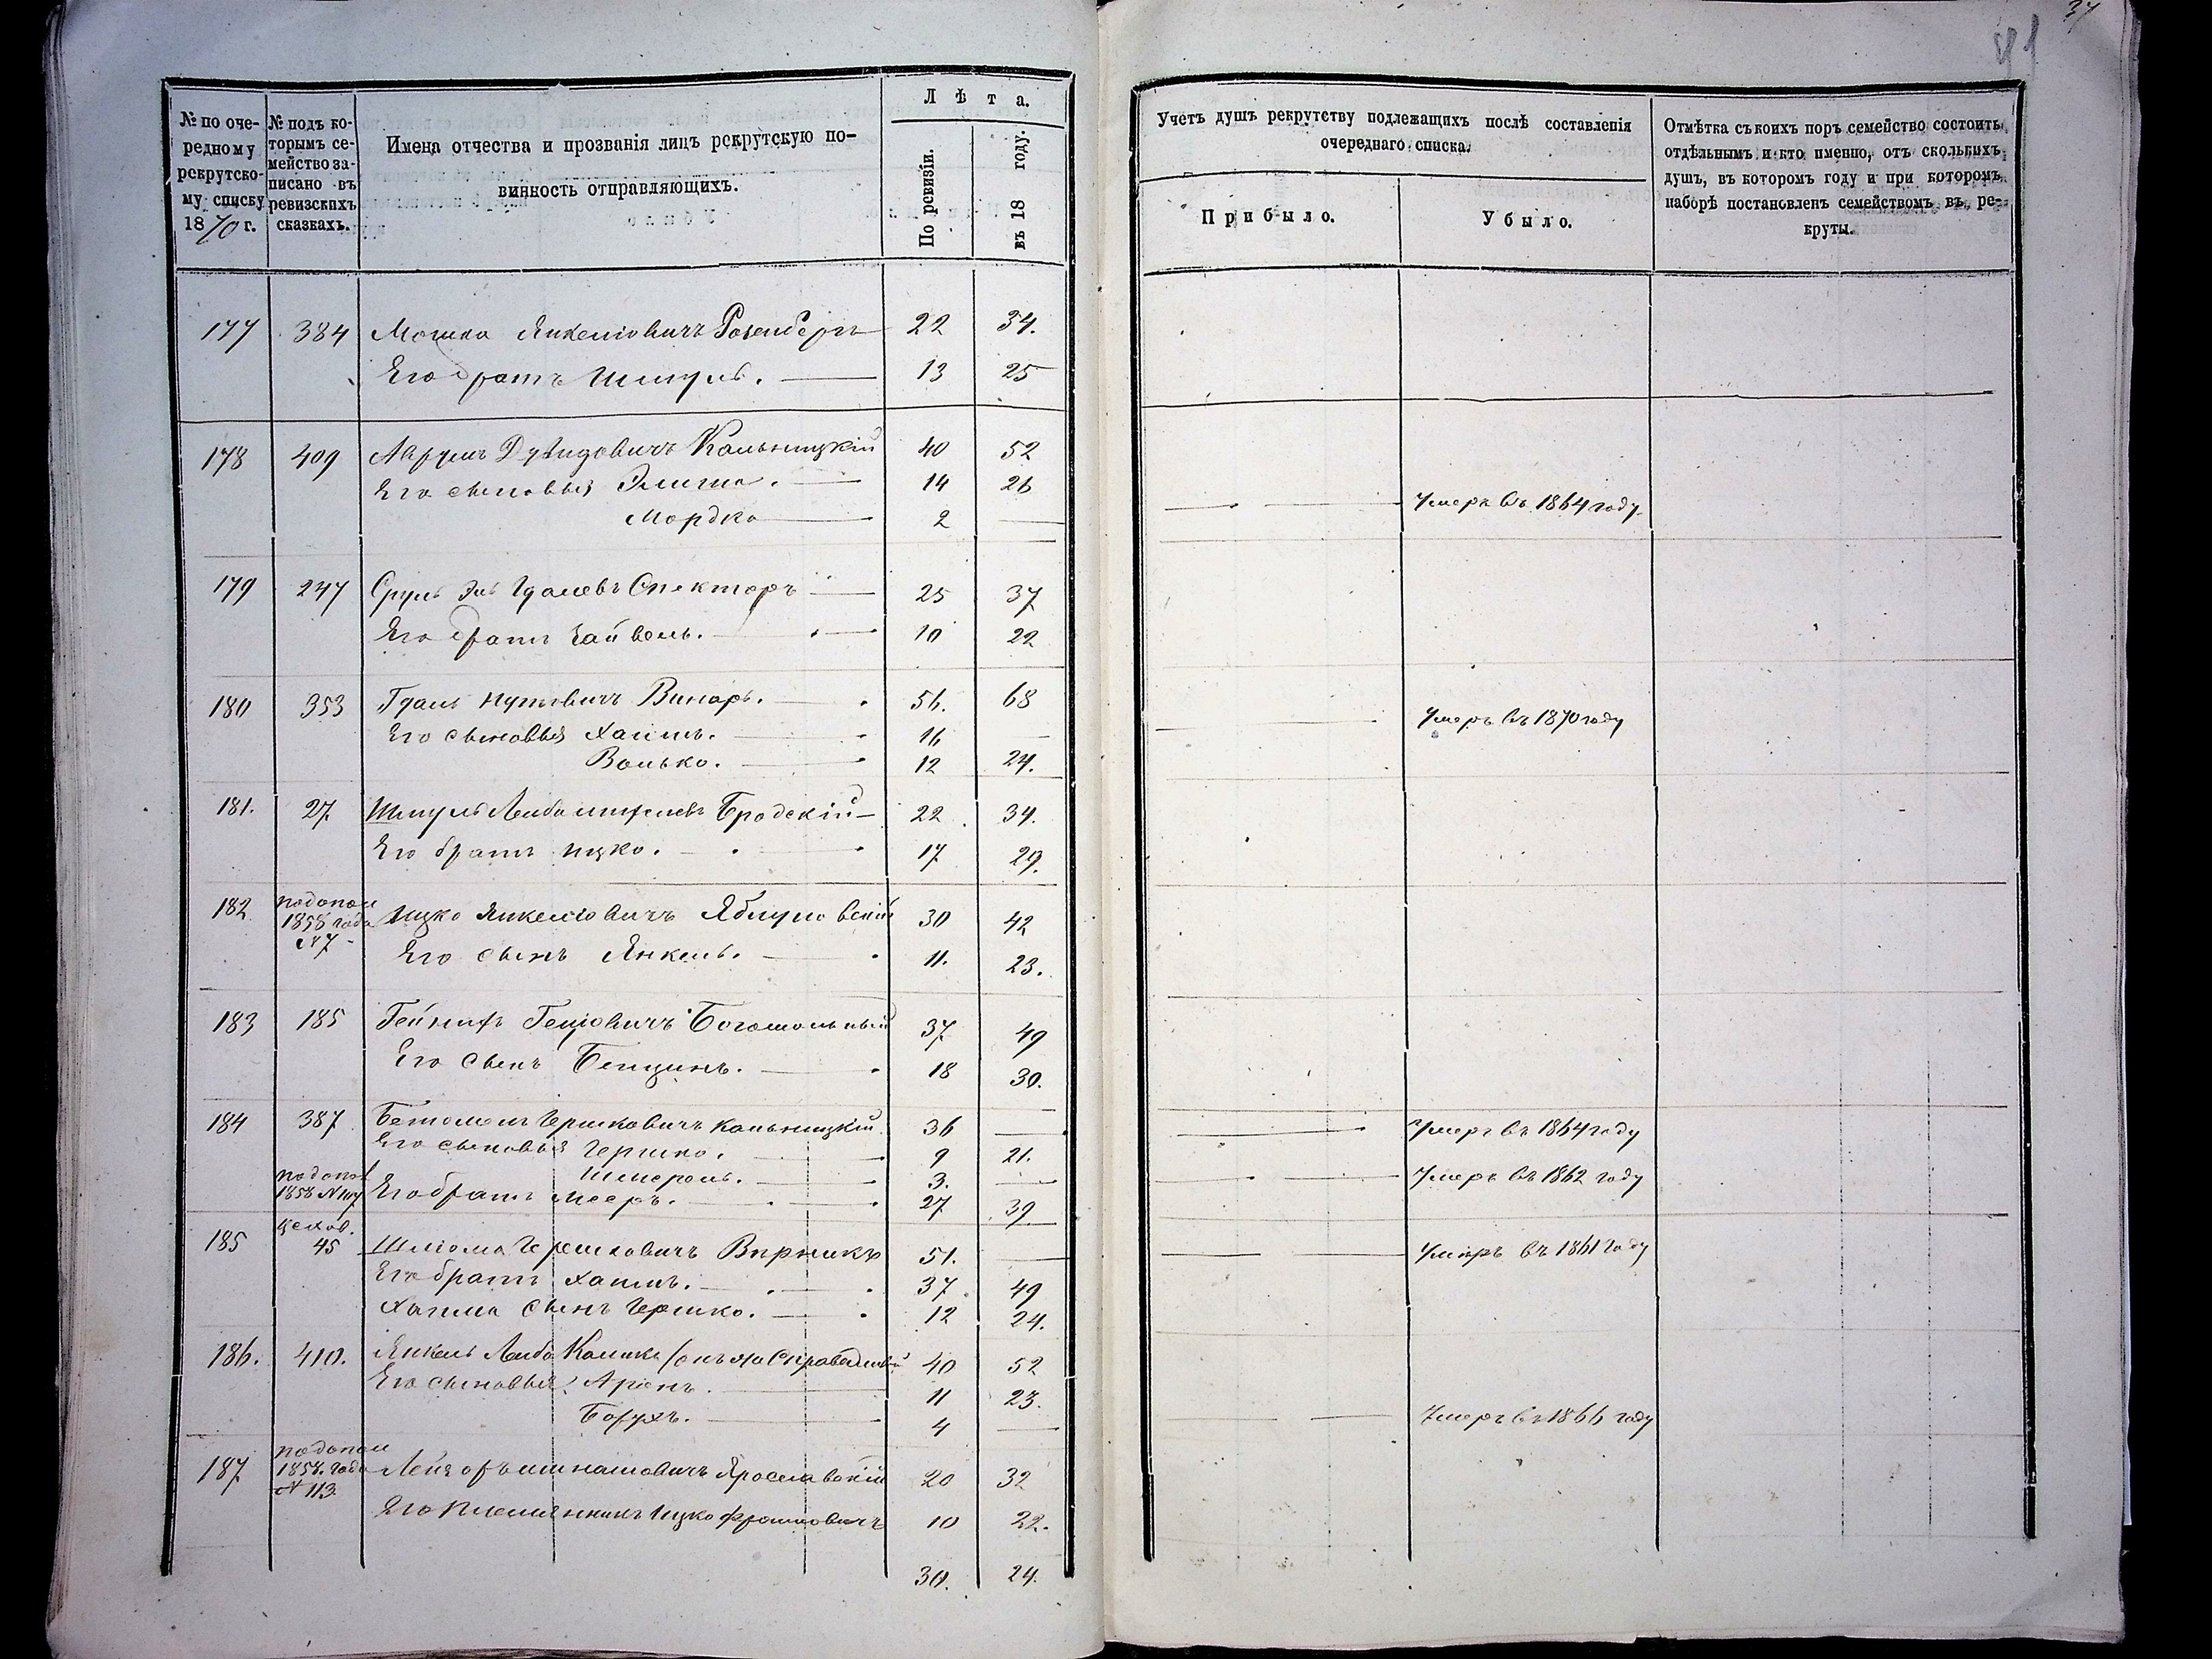 37
41
№ по оче-
редному
рекрутско-
му списку
1870 г.
№ подъ ко-
торымъ се-
мейство за-
писано въ
ревизскихъ
сказкахъ.
Имена отчества и прозванія лицъ рекрутскую по-
винность отправляющихъ.
Лѣта.
По ревизіи.
въ 18 году.
Учетъ душъ рекрутству подлежащихъ послѣ составленія
очереднаго списка.
Прибыло.
Убыло.
Отмѣтка съ коихъ поръ семейство состоитъ
отдѣльнымъ и кто именно, отъ сколькихъ
душъ, въ которомъ году и при которомъ
наборѣ поставленъ семействомъ въ ре-
круты.
177 384 Мошко Янкеліовичъ Розенбергъ 22 34.
Его братъ Шмуль. 13 25
178 409 Аврумъ Дувидовичъ Кальницкій 40 52
Его сыновья Элиша. 14 26
Мордко 2 — Умеръ въ 1864 году
179 247 Сруль Эль Гдалевъ Спекторъ 25 37
Его братъ Файвель. 10 22
180 353 Гдаль Нутовичъ Винаръ. 56. 68 Умеръ въ 1870 году
Его сыновья Хаимъ. 16 —
Волько. 12 24.
181. 27. Шмуль Лейба Бродскій 22 34.
Его братъ Ицко. 17 29.
182 по допол 1858 года №7 Ицко Янкеліовичъ Яблуновскій 30 42
Его сынъ Янкель. 11. 23.
183 185 Богомольный 37 49
Его сынъ Бенционъ. 18 30.
184 387 Гершковичъ Кальницкій 36 — Умеръ въ 1864 году
Его сыновья Гершко. 9 21.
Шмероль. 3. — Умеръ въ 1862 году
по допол 1858 №107 Его братъ Мееръ. 27 39
185 цехов. 45 Шліома Гершковичъ Вирникъ 51. — Умеръ въ 1861 году
Его братъ Хаимъ. 37 49
Хаима сынъ Гершко. 12 24.
186. 410. Янкель Лейба Калика (онъ же Справедливый 40 52
Его сыновья Аронъ. 11 23.
Борухъ. 4 — Умеръ въ 1866 году
187 по допол 1858. года №113 Ярославскій 20 32
Его племянникъ Ицко Фроимовичъ 10 22.
30. 24.